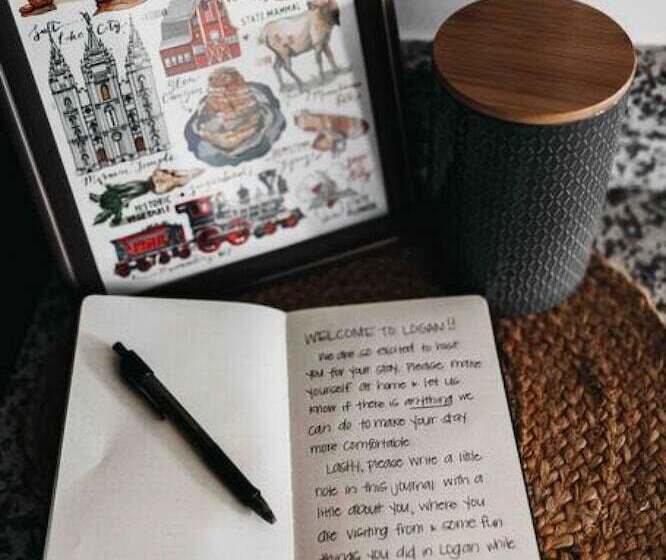 Salt Lake City
STATE MAMMAL
Mormon Temple
HISTORIC
VEGETABLE
WELCOME TO LOGAN!!
We are so excited to host
you for your stay. Please make
yourself at home & let us
know if there is anything we
can do to make your stay
more comfortable
Lastly, please write a little
note in this journal with a
little about you, where you
are visiting from & some fun
things you did in Logan while